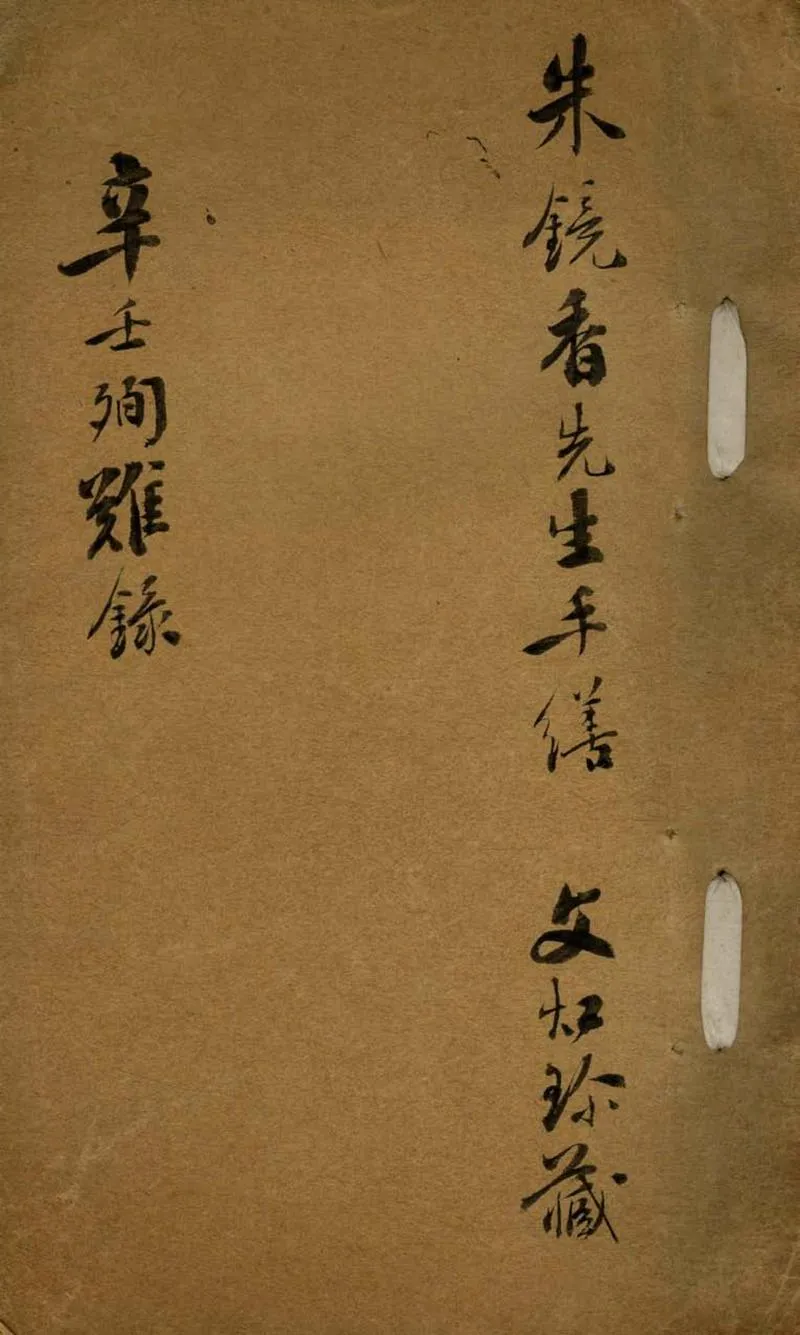 朱鏡香先生手繕 文虹珍藏
辛壬殉難錄